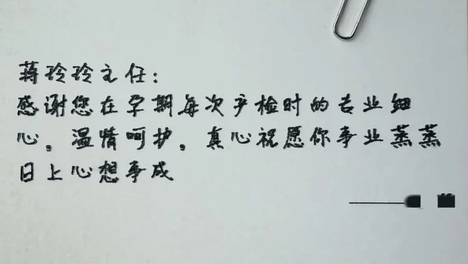 蒋玲玲主任：
感谢您在孕期每次产检时的专业细
心。温情呵护。真心祝愿你事业蒸蒸
日上心想事成